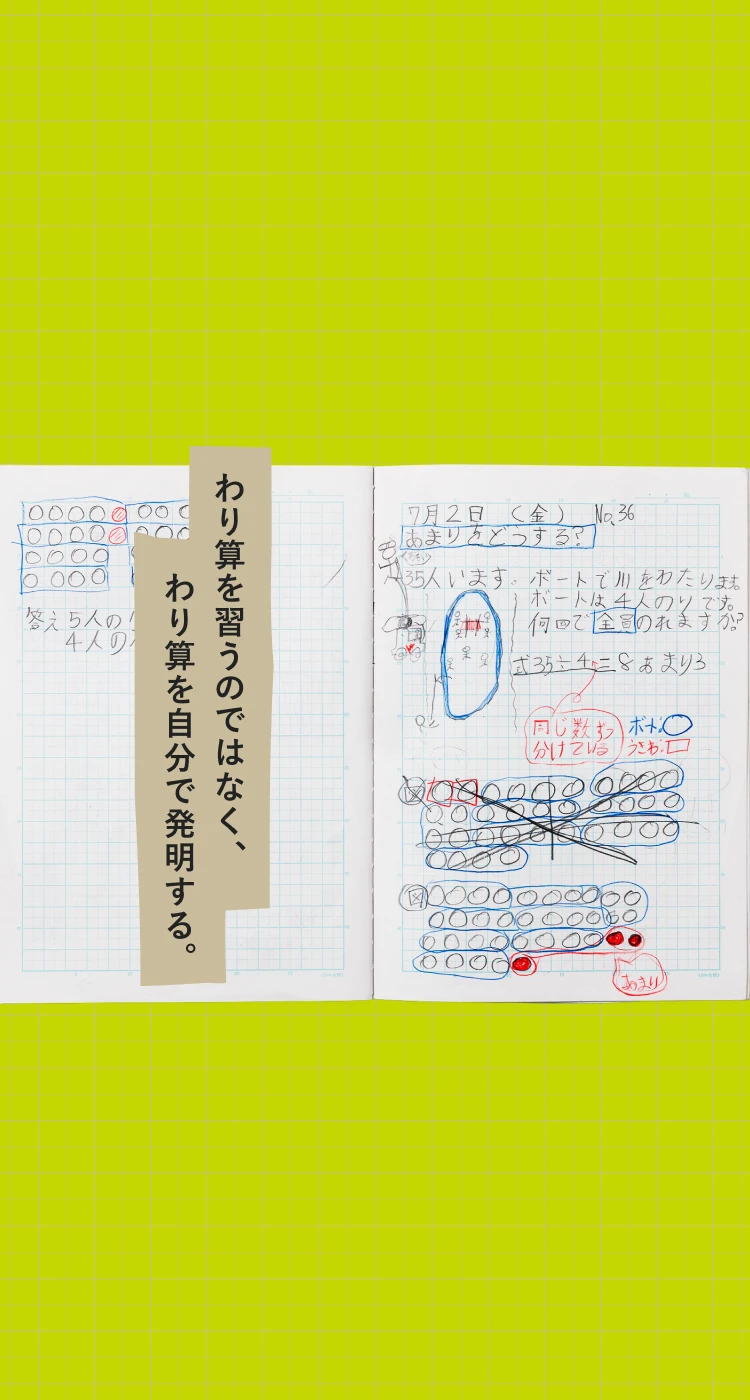 わり算を習うのではなく、
わり算を自分で発明する。
答え 5人の
4人の
7月2日 (金) No.36
あまりをどうする?
35人います。ボートで川をわたります。
ボートは4人のりです。
何回で全員のれますか?
式35÷4=8あまり3
同じ数ずつ
分けている
ボート:
うさお:
図
図
あまり